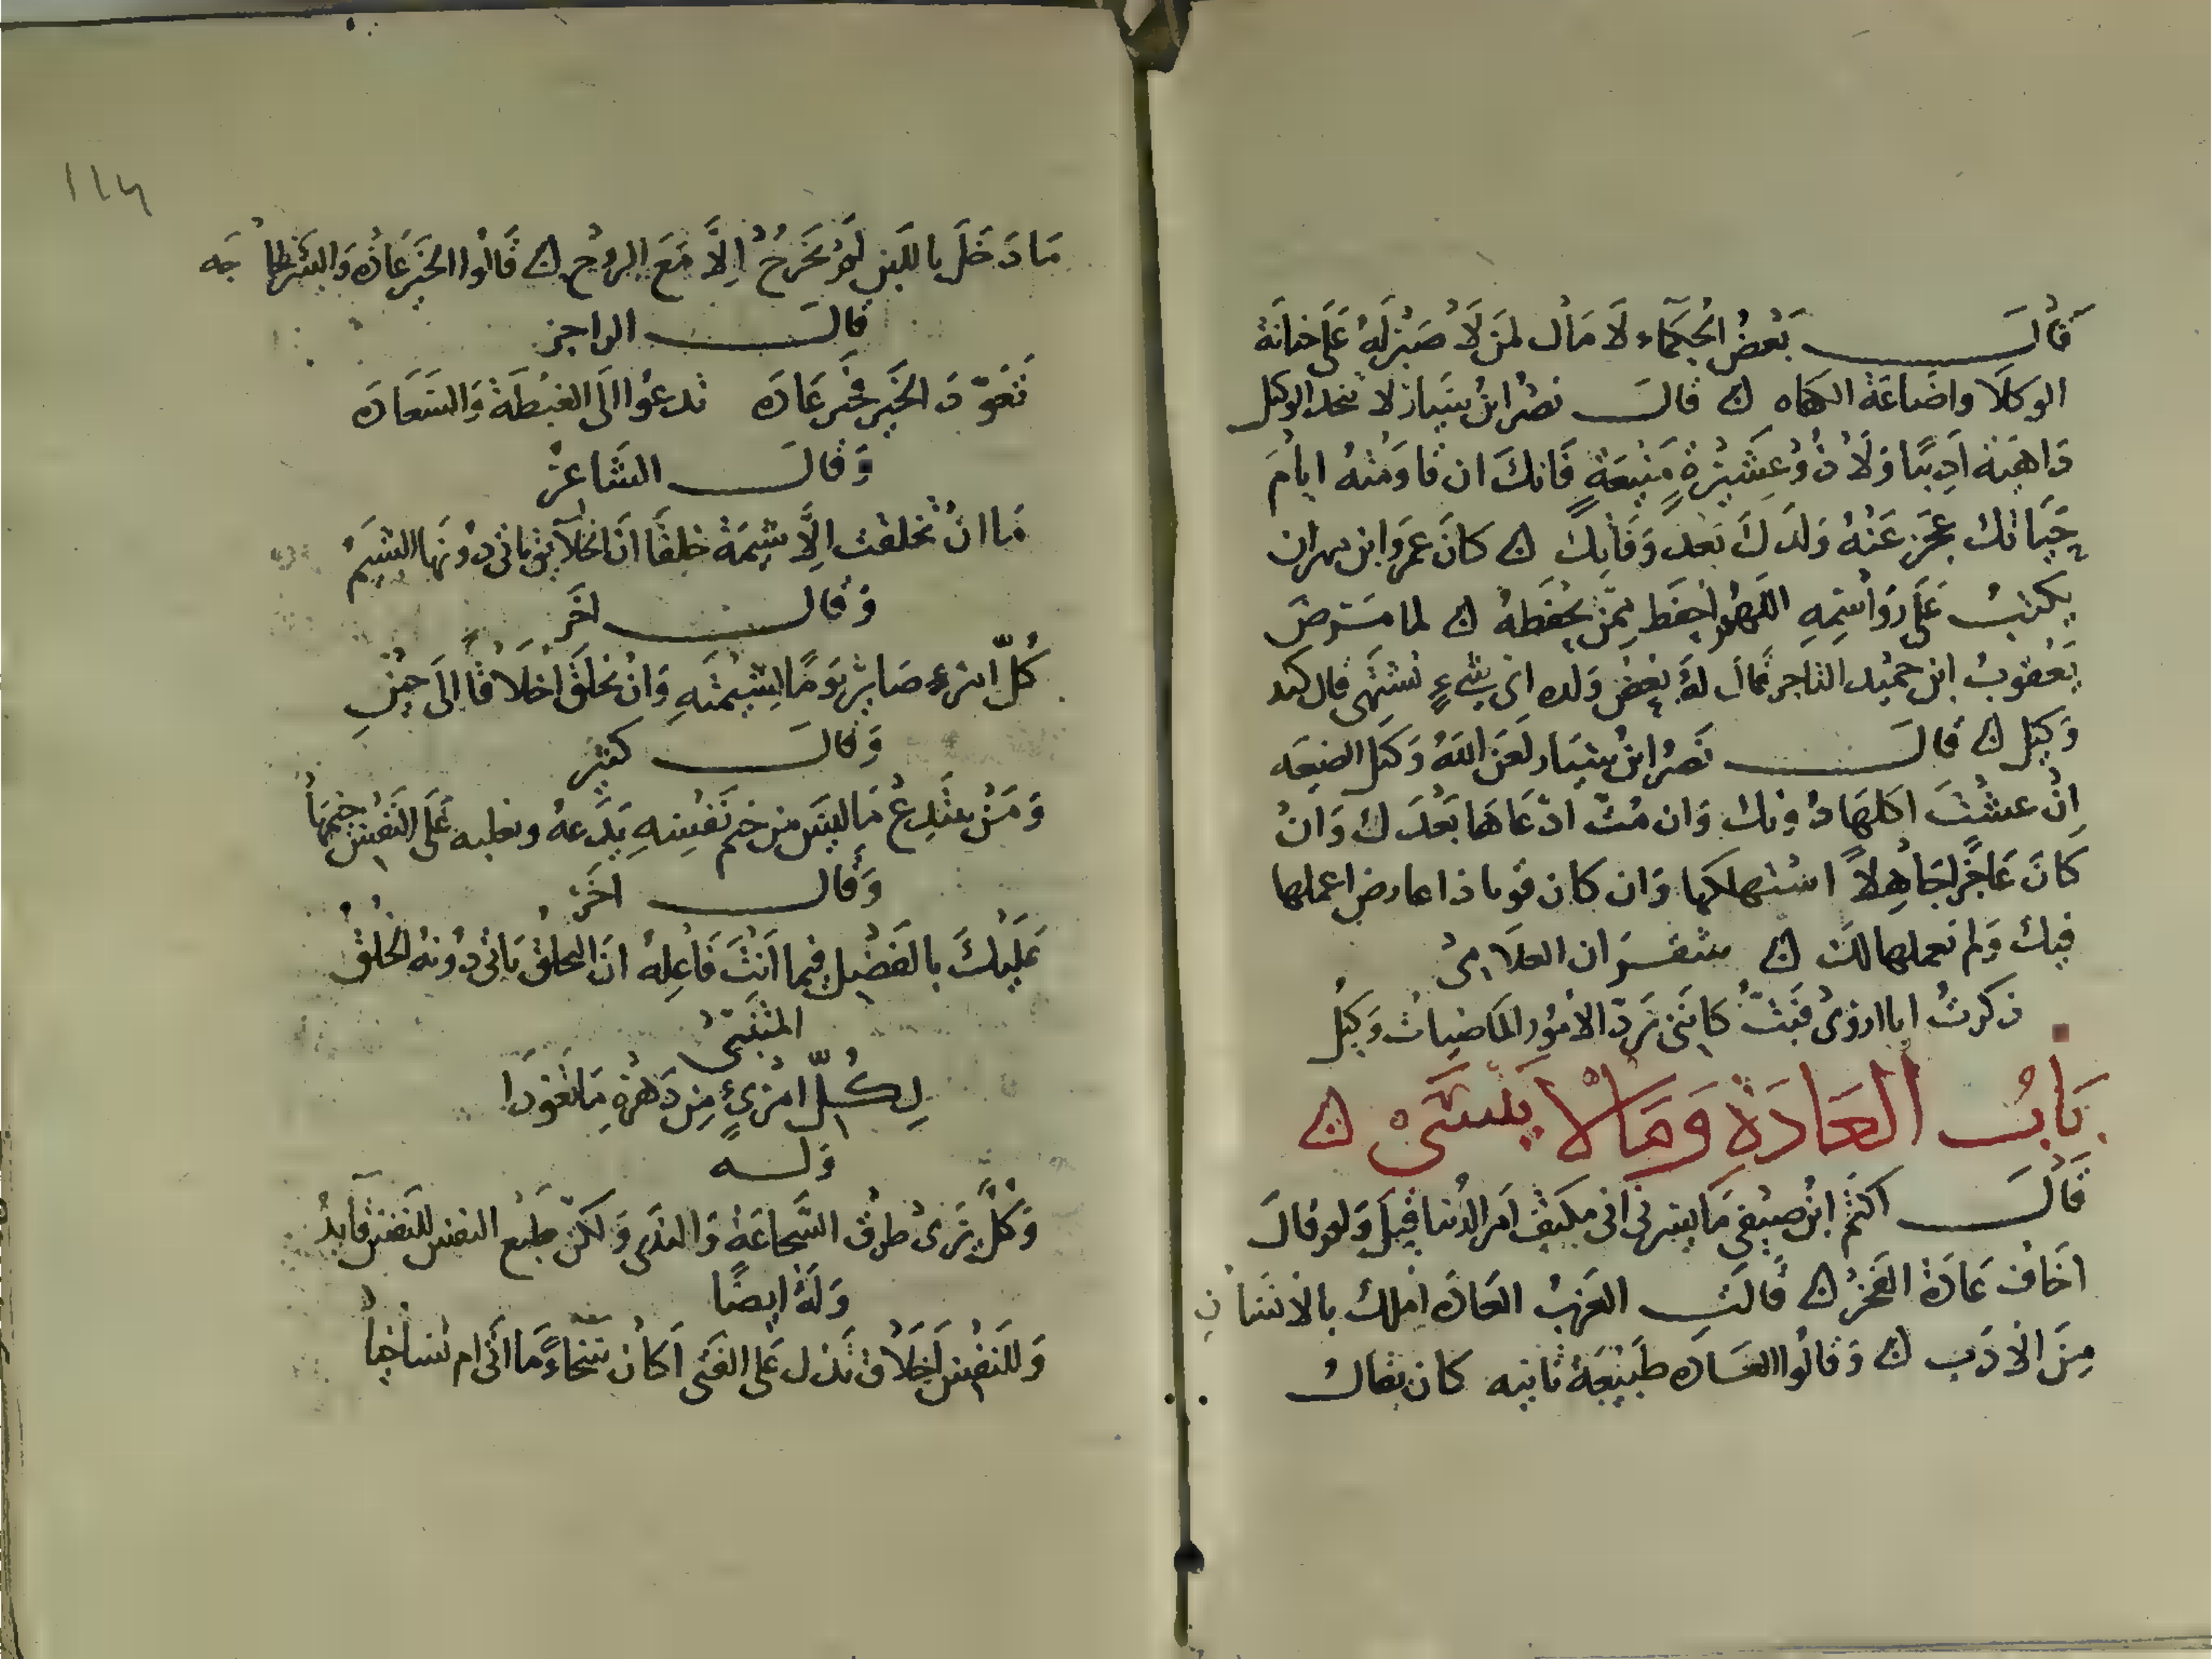 قَالَ بَعْضُ الحُكَمَاء لَا مَال لمَن لَا صَبْرَ لَهُ عَلَى خيانة
الوكلا واضاعَة الكفاه ن قالَ نصْر ابنُ سَيار لا تتخذ الوكيل
دَاهيَة اَدِيبًا وَلَا ذُو عَشِيْرةٍ مَنِيعَةٍ فَانكَ ان قاوَمْتهُ ايامَ
حَيَاتك عجَزَ عَنْهُ وَلَدَكَ بَعدَ وَفَاتِكَ ن كانَ عمرَو ابن مهران
يكتبُ عَلَى رَوَاسِمِهِ اللهُم احفَظ مِمَّن يحْفَظهُ ن لما مَرضَ
يَعْقوبُ ابن حميْد التاجر قالَ لهُ بَعْضُ وَلده اي شيءٍ تشتَهي قال كبد
وَكِيل ن قالَ نَصْرُ ابنُ سَيَار لَعَنَ اللهُ وَكيلَ الضيعَه
اِنْ عشْتَ اكلهَا دُونك وَان مُتّ ادّعَاهَا بَعْدَك وَانْ
كانَ عَاجزًا جَاهِلًا اسْتهلكها وَان كان قويا ذا عارض اعملها
فيك وَلم يعملها لك ن شقران العلَامىُ
ذكرتُ ابا اروَىْ فَبَتُّ كانَنى بَرَدّ الاُمُور المَاضِياتْ وَكِيْلُ
بَابُ العَادَة وَمَا لَا يَنْسَىْ ن
قَالَ اكثمُ ابْنُ صَيْفي مَا يسرنى انى مكفيّ اَمرَ الدُنيا قِيلَ وَلم قالَ
اخَافُ عَادَة العَجْز ن قَالَتِ العَرَبُ العَادَة اَملك بالانسَان
مِنَ الْاَدَب ن وَقَالُوا العَادَه طَبِيْعَةْ ثانيه كان يقال
مَا دَخَلَ باللبَن لَمْ يَخرُجْ اِلَّا مَعَ الروُح ن قَالُوا الخيَر عَادَه وَالشر لجَاجَه
قالَ الراجز
تَعَوّدَ الخَير فخَير عَادَه تَدعُوا الَى الغبْطَة وَالسَعَادَه
وَقالَ الشاعرُ
مَا انْ تخلقت اِلَّا شِيمَة خلِقًا انَ الخلآيق ياتى دُونَها الشيَمُ
وَقالَ اخَر
كُلّ امرءٍ صَاير يَومًا لِشيمتهِ وَانْ تخلَقَ اَخْلَاقًا الَى حِيْنِ
وَقالَ كثيَر
وَمَنْ يبتَدِعْ مَا ليسَ من خيم نَفْسِهِ يَدَعهُ ويغلبه عَلَى النَفسِ خيْمهَا
وَقالَ اخَرُ
عَلَيْكَ بالفَضْل فِيما اَنْتَ فَاعِلهُ انَ التخلقْ يَاتي دُونه الخُلُقْ
المتنَبّىْ
لِكُلّ امْرئٍ مِن دَهْرهِ مَا تعَودَا
وَله
وَكُلٌّ يَرَىْ طُرقْ الشَجَاعَةْ وَالندَى وَلَكنّ طَبْع النفس للنَفس قَايدُ
وَلهُ ايضًا
وَللنَفس اَخلَاق تَدُل عَلى الفَتَى اَكانَ سَخَاءً مَا اَتَى ام تسَاخِيا